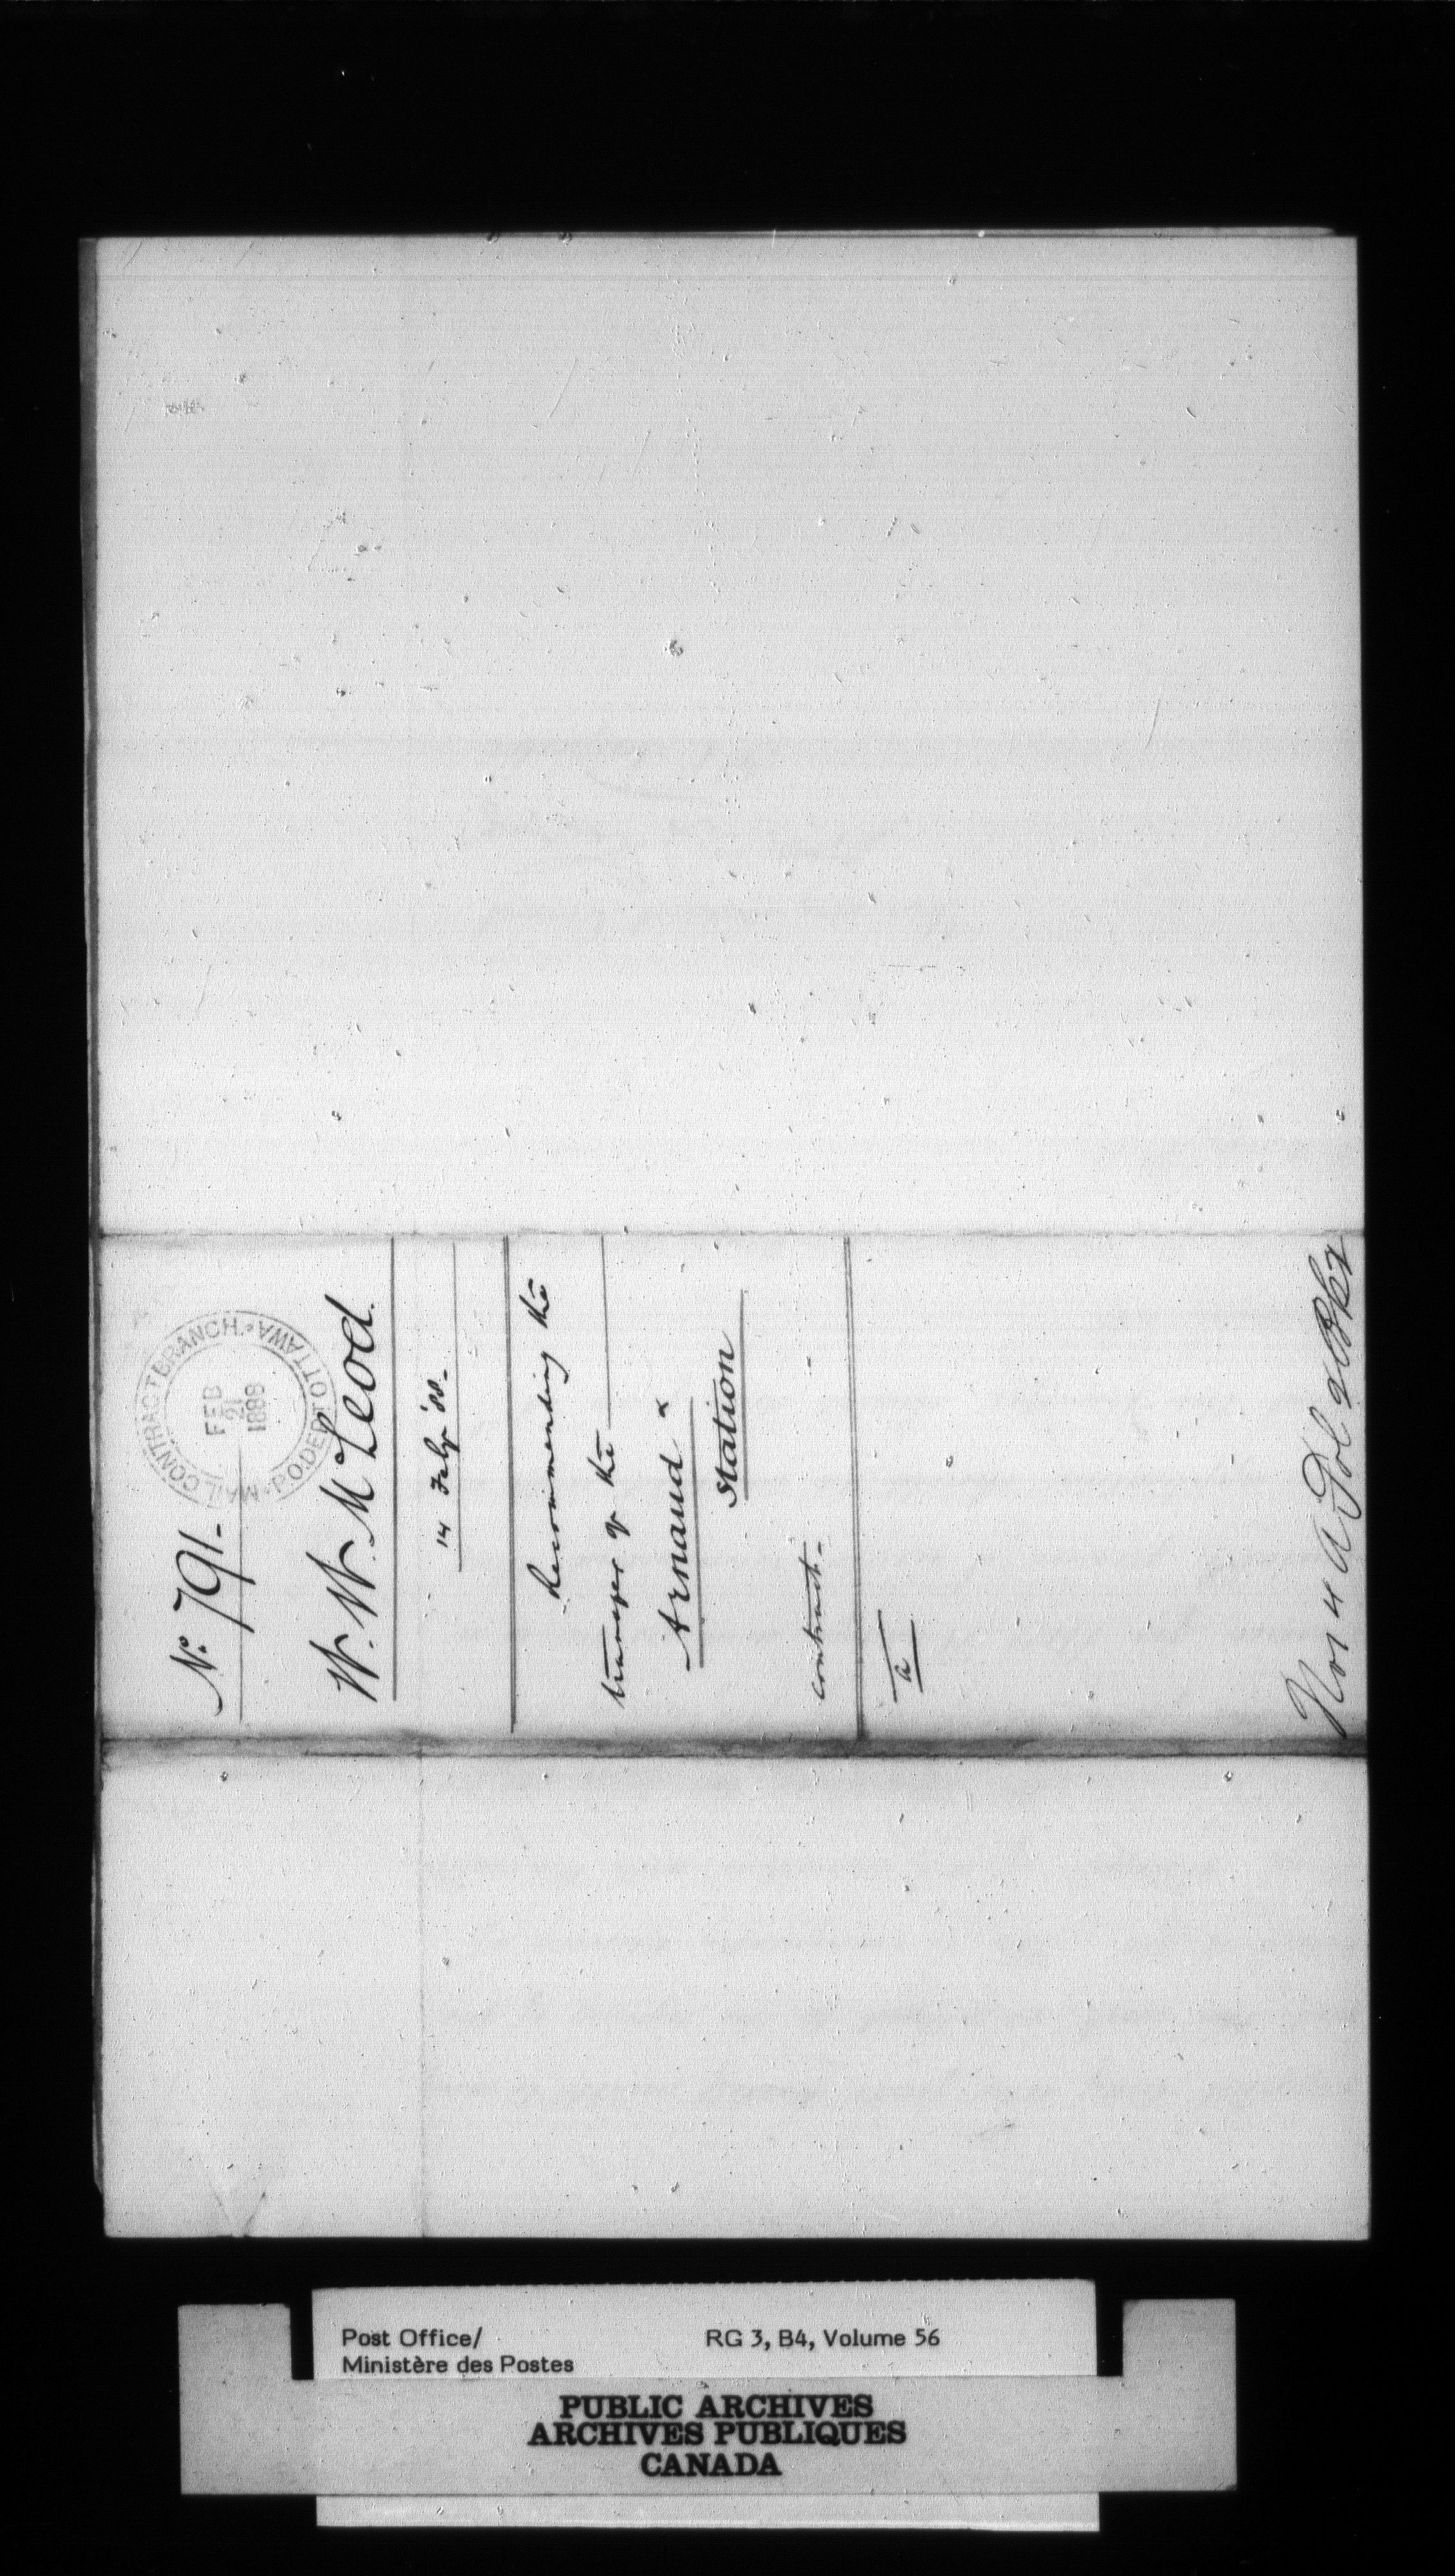 No. 791-
MAIL CONTRACT BRANCH. P.O. DEPT OTTAWA
FEB
21
1888
W. W. McLeod.
14 Feby '88-
Recommending the
transfer of the
Arnaud &
Station
contract-
Post Office/
Ministère des Postes
RG 3, B4, Volume 56
PUBLIC ARCHIVES
ARCHIVES PUBLIQUES
CANADA